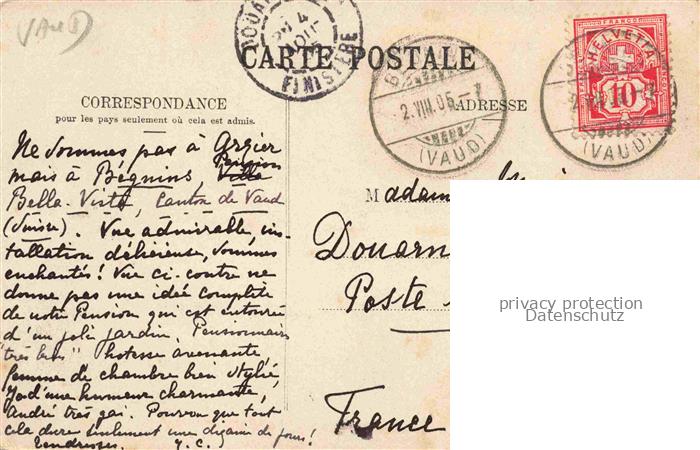 (VAUD)
DOUARN
4
AOUT
FINISTERE
CARTE POSTALE
2.VIII.05.
(VAUD)
HELVETIA
FRANCO
10
(VAUD)
CORRESPONDANCE
pour les pays seulement où cela est admis.
ADRESSE
Ne sommes pas à
mais à Bégnins, Villa Pension
Bella-Vista, Canton de Vaud
(Suisse). Vue admirable, ins-
tallation délicieuse, sommes
enchantés! Vue ci-contre ne
donne pas une idée complète
de notre Pension qui est entourée
d'un joli jardin. Pensionnaires
"très bien" hotesse avenante,
femme de chambre bien stylée,
Yo d'une humeur charmante,
André très gai. Pourvu que tout
cela dure seulement une dizaine de jours!
Tendresses. Y. C.
Madam
Douarn
Poste
France
privacy protection
Datenschutz